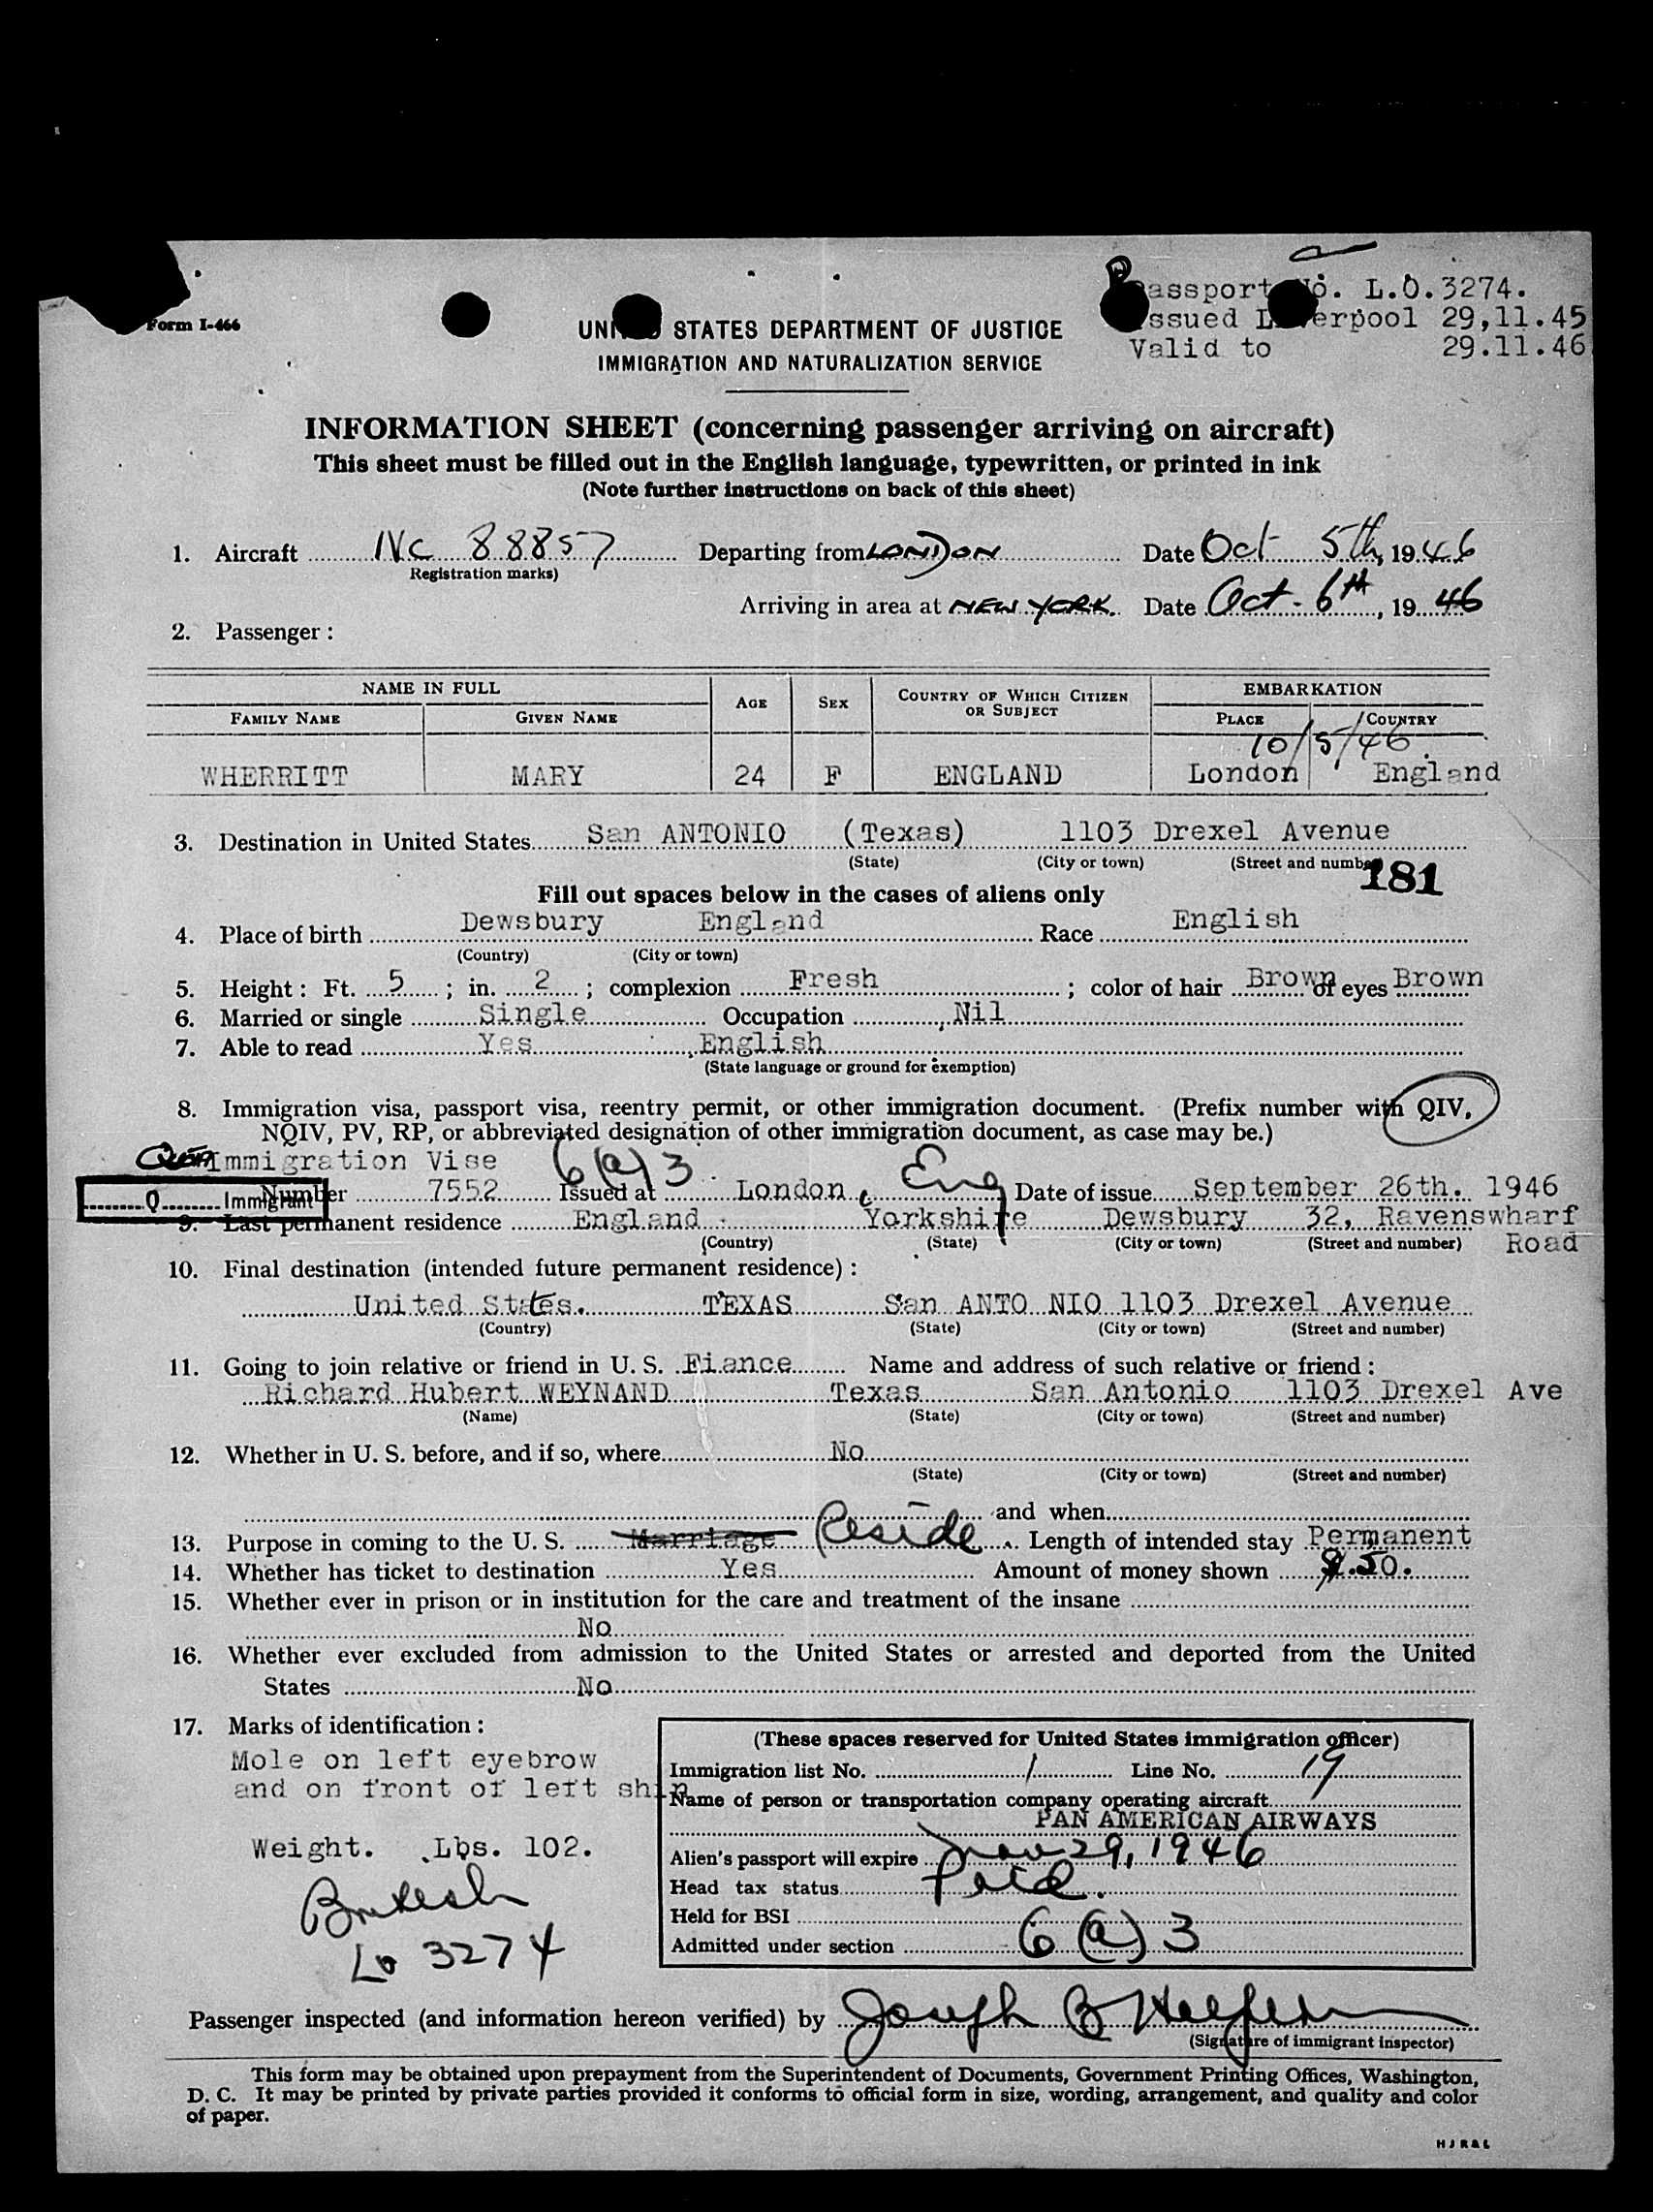 Passport No. L.O.3274.
Form I-466
Issued Liverpool 29,11.45
UNITED STATES DEPARTMENT OF JUSTICE
Valid to 29.11.46
IMMIGRATION AND NATURALIZATION SERVICE
INFORMATION SHEET (concerning passenger arriving on aircraft)
This sheet must be filled out in the English language, typewritten, or printed in ink
(Note further instructions on back of this sheet)
1. Aircraft NC 88857 Departing from LONDON Date Oct 5th, 1946
Registration marks)
Arriving in area at NEW YORK. Date Oct - 6th, 19 46
2. Passenger :
NAME IN FULL AGE SEX COUNTRY OF WHICH CITIZEN OR SUBJECT EMBARKATION
FAMILY NAME GIVEN NAME PLACE COUNTRY
10/5/46.
WHERRITT MARY 24 F ENGLAND London England
3. Destination in United States San ANTONIO (Texas) 1103 Drexel Avenue
(State) (City or town) (Street and number)
181
Fill out spaces below in the cases of aliens only
4. Place of birth Dewsbury England Race English
(Country) (City or town)
5. Height : Ft. 5 ; in. 2 ; complexion Fresh ; color of hair Brown of eyes Brown
6. Married or single Single Occupation Nil
7. Able to read Yes English
(State language or ground for exemption)
8. Immigration visa, passport visa, reentry permit, or other immigration document. (Prefix number with QIV,
NQIV, PV, RP, or abbreviated designation of other immigration document, as case may be.)
Immigration Vise 6(a)3
Q Immigrant
Number 7552 Issued at London, Eng Date of issue September 26th. 1946
9. Last permanent residence England Yorkshire Dewsbury 32, Ravenswharf
(Country) (State) (City or town) (Street and number) Road
10. Final destination (intended future permanent residence) :
United States. TEXAS San ANTO NIO 1103 Drexel Avenue
(Country) (State) (City or town) (Street and number)
11. Going to join relative or friend in U. S. Fiance Name and address of such relative or friend :
Richard Hubert WEYNAND Texas San Antonio 1103 Drexel Ave
(Name) (State) (City or town) (Street and number)
12. Whether in U. S. before, and if so, where No
(State) (City or town) (Street and number)
and when
13. Purpose in coming to the U. S. Marriage Reside Length of intended stay Permanent
14. Whether has ticket to destination Yes Amount of money shown $.50.
15. Whether ever in prison or in institution for the care and treatment of the insane
No
16. Whether ever excluded from admission to the United States or arrested and deported from the United
States No
17. Marks of identification :
Mole on left eyebrow
and on front of left shin
Weight. Lbs. 102.
British
Lo 3274
(These spaces reserved for United States immigration officer)
Immigration list No. 1 Line No. 19
Name of person or transportation company operating aircraft
PAN AMERICAN AIRWAYS
Alien's passport will expire Nov 29, 1946
Head tax status Paid.
Held for BSI
Admitted under section 6(a)3
Passenger inspected (and information hereon verified) by Joseph B
(Signature of immigrant inspector)
This form may be obtained upon prepayment from the Superintendent of Documents, Government Printing Offices, Washington,
D. C. It may be printed by private parties provided it conforms to official form in size, wording, arrangement, and quality and color
of paper.
HJR&L